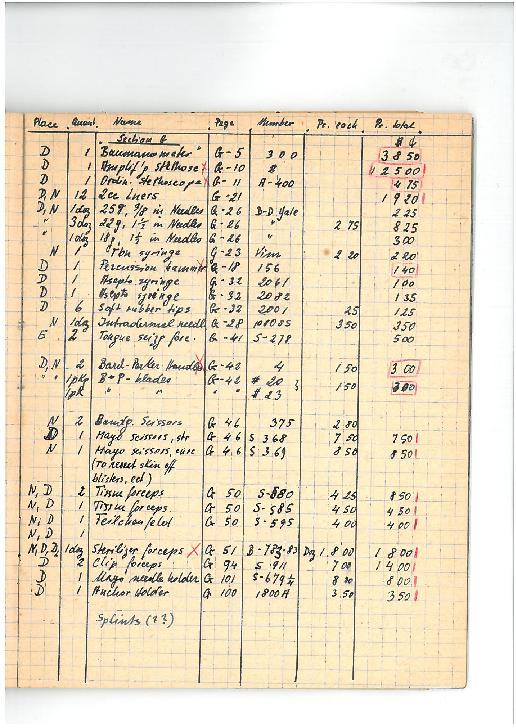 Place Quant. Name Page Number Pr. each Pr. total
Section G $ ¢
D 1 "Baumanometer" G-5 300 38 50
D 1 G-10 8 125 00
D 1 Ordin. Stethoscope G-11 A-400 4 75
D, N 12 2cc G-21 19 20
D, N 1doz 25g, in Needles G-26 B-D Yale 2 25
" 3doz 22g, 1½ in Needles G-26 " 2 75 8 25
" 1doz 18g, 1½ in Needles G-26 " 3 00
N 1 syringe G-23 Vim 2 20 2 20
D 1 Percussion hammer G-18 156 1 40
D 1 Asepto syringe G-32 2061 1 00
D 1 Asepto syringe G-32 2082 1 35
D 6 Soft rubber tips G-32 2001 25 1 25
N 1doz Intradermal needl G-28 3 50 3 50
E 2 Tongue forc. G-41 S-278 5 00
D, N 2 Bard-Parker Handles G-42 4 1 50 3 00
" " 1pkg B+P blades G-42 # 20 } 1 50 3 00
1pk " " " " # 23
N 2 Bandg. Scissors G 46 375 2 80
D 1 Mayo scissors, str G 46 S 368 7 50 7 50
N 1 Mayo scissors, curv G 46 S 369 8 50 8 50
(to resect skin off
blisters, ect)
N, D 2 Tissue forceps G 50 4 25 8 50
N, D 1 Tissue forceps. G 50 S-585 4 50 4 50
N, D 1 G 50 S-595 4 00 4 00
N, D 1
N, D, D, 1doz Steriliger forceps G 51 Doz 18.00 18 00
D 2 Clip forceps G 94 S 911 7 00 14 00
D 1 Mayo needle holder G 101 S-679¼ 8 00 8 00
D 1 Anchor Holder G 100 1800A 3.50 3 50
Splints (??)